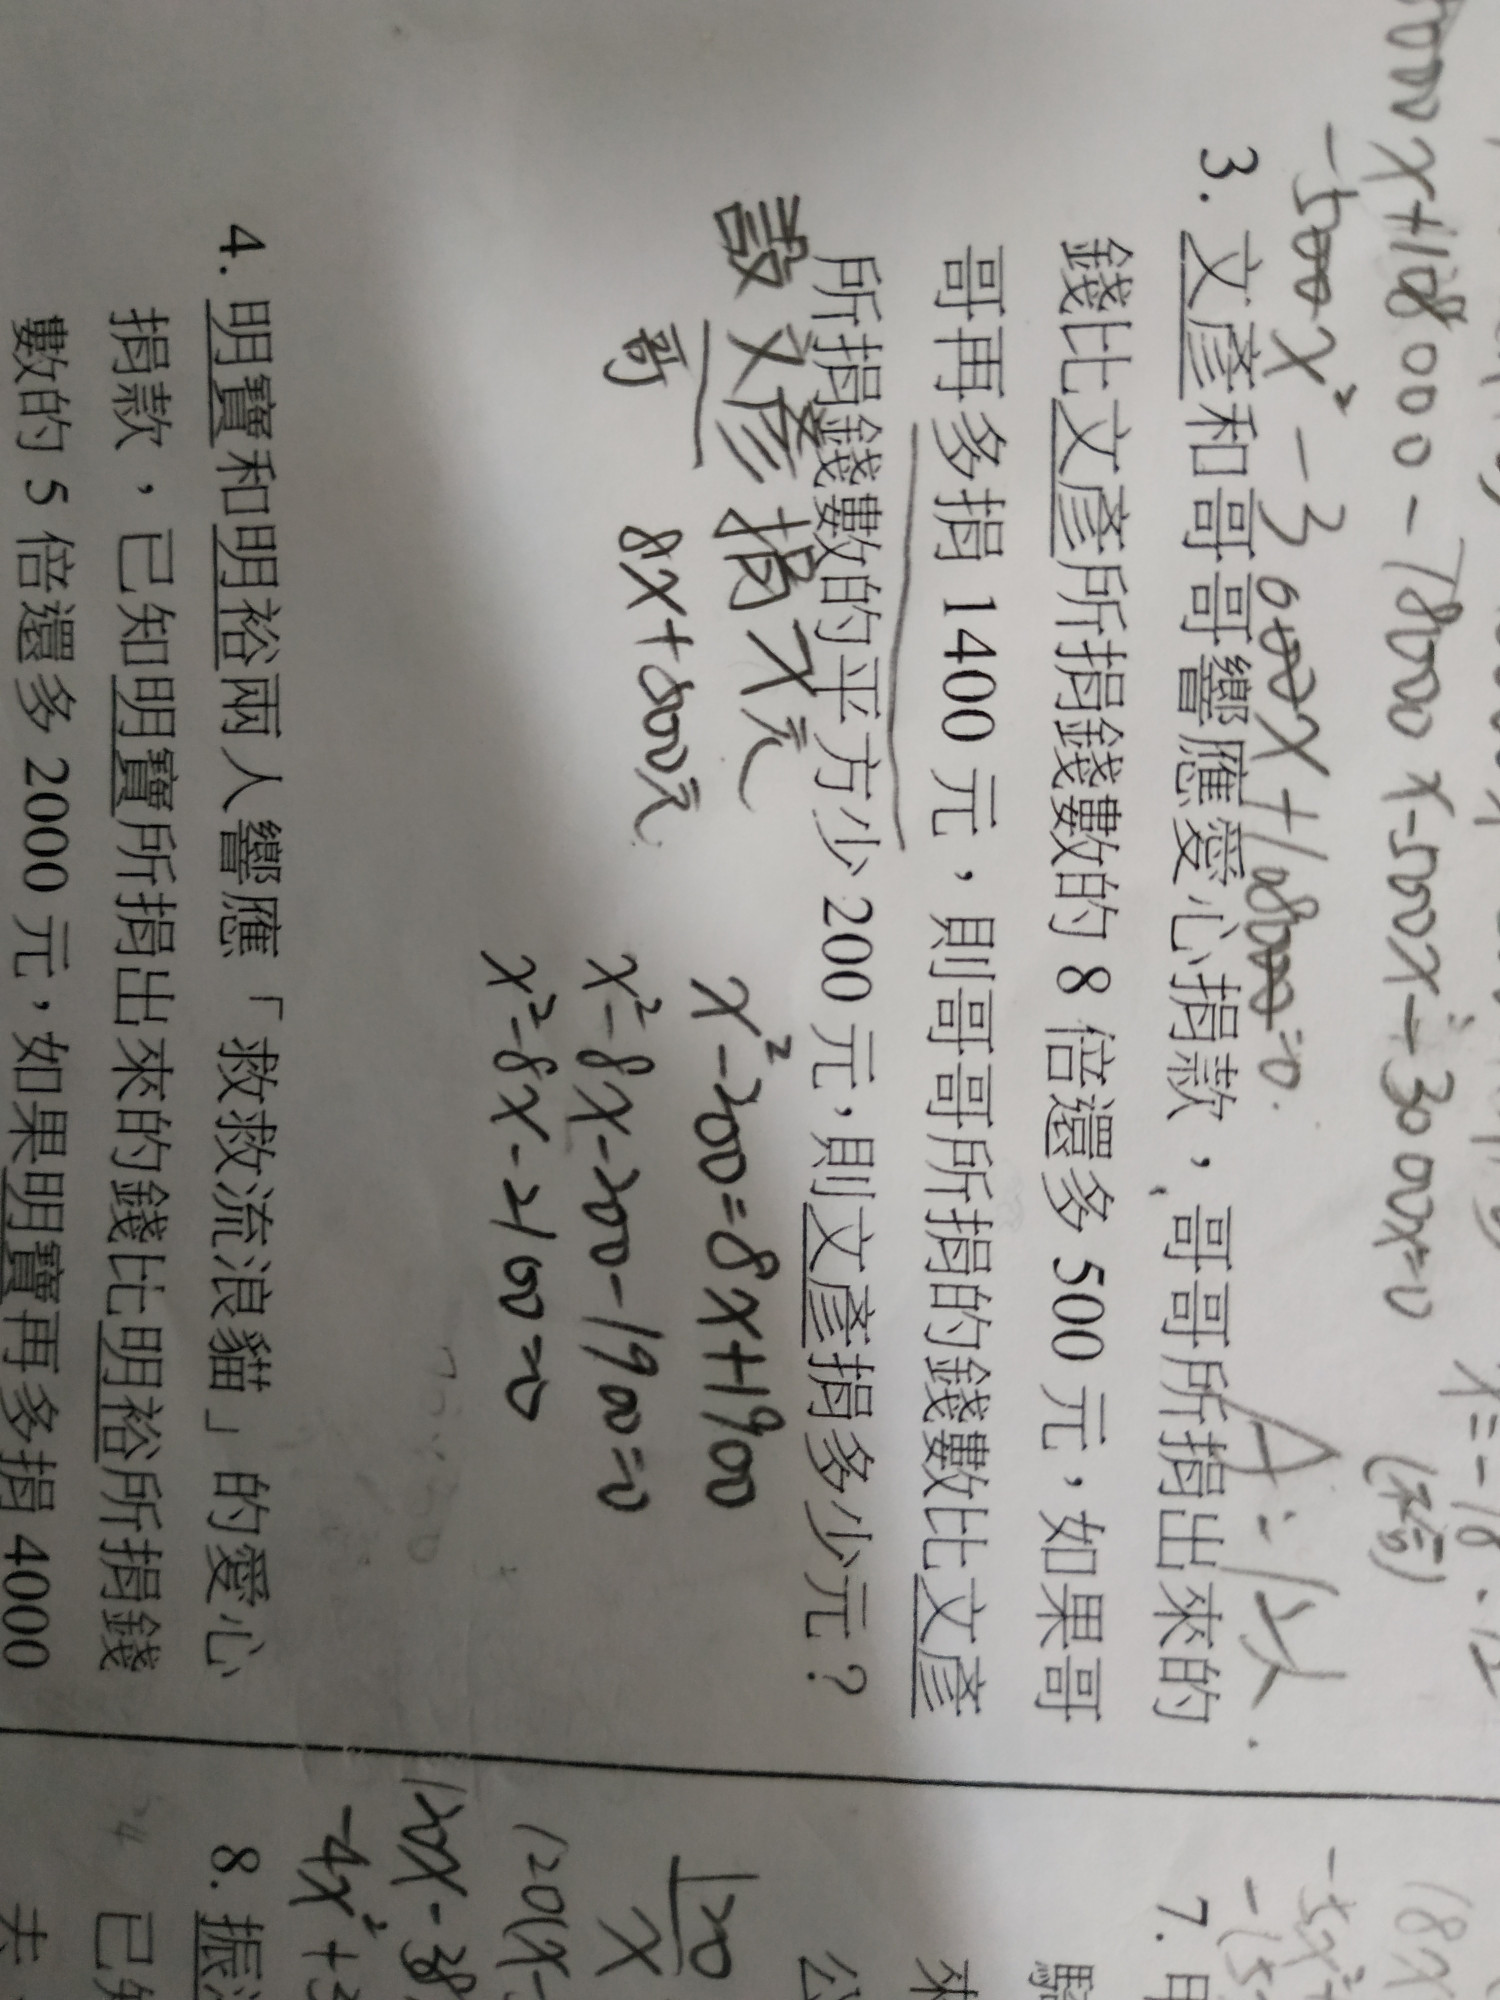 000x+108000-78000x-500x²-3000x=0
-500x²-3000x+108000=0.
x=-18.12
(不合)
A:12.
3.文彥和哥哥響應愛心捐款，哥哥所捐出來的
錢比文彥所捐錢數的 8 倍還多 500 元，如果哥
哥再多捐 1400 元，則哥哥所捐的錢數比文彥
所捐錢數的平方少 200 元，則文彥捐多少元？
設文彥捐x元
哥 8x+500元
x²-200=8x+1900
x²-8x-200-1900=0
x²-8x-2100=0
4.明寶和明裕兩人響應「救救流浪貓」的愛心
捐款，已知明寶所捐出來的錢比明裕所捐錢
數的 5 倍還多 2000 元，如果明寶再多捐 4000
18x
-5x²+
7.
來
公
120
x
120(x-
120x-38
-4x²+3
8.振
已知
去